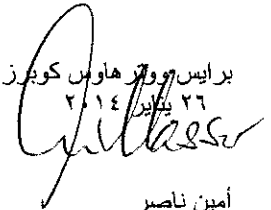 برايس ووتر هاوس كوبرز
٢٦ يناير ٢٠١٤
أمين ناصر